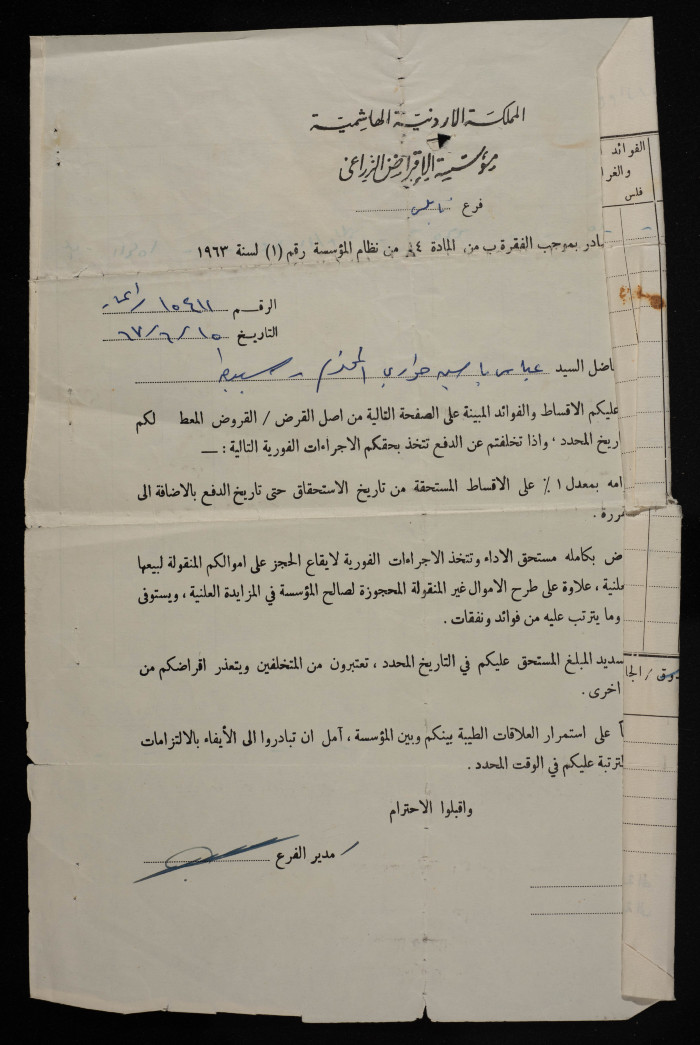 المملكة الاردنية الهاشمية
مؤسسة الإقراض الزراعي
فرع نابلس
ادر بموجب الفقرة ب من المادة ٤ من نظام المؤسسة رقم (١) لسنة ١٩٦٣
الرقم ١٥٤١١
التاريخ ١٥ / ٦ / ٦٧
اضل السيد عباس ياسين حواري المحترم
عليكم الاقساط والفوائد المبينة على الصفحة التالية من اصل القرض / القروض المعط لكم
اريخ المحدد ، واذا تخلفتم عن الدفع تتخذ بحقكم الاجراءات الفورية التالية : —
امه بمعدل ١٪ على الاقساط المستحقة من تاريخ الاستحقاق حتى تاريخ الدفع بالاضافة الى
قررة .
ض بكامله مستحق الاداء وتتخذ الاجراءات الفورية لايقاع الحجز على اموالكم المنقولة لبيعها
علنية ، علاوة على طرح الاموال غير المنقولة المحجوزة لصالح المؤسسة في المزايدة العلنية ، ويستوفى
وما يترتب عليه من فوائد ونفقات .
سديد المبلغ المستحق عليكم في التاريخ المحدد ، تعتبرون من المتخلفين ويتعذر اقراضكم من
اخرى .
اً على استمرار العلاقات الطيبة بينكم وبين المؤسسة ، آمل ان تبادروا الى الأيفاء بالالتزامات
لترتبة عليكم في الوقت المحدد .
واقبلوا الاحترام
مدير الفرع
الفوائد
والغرا
فلس